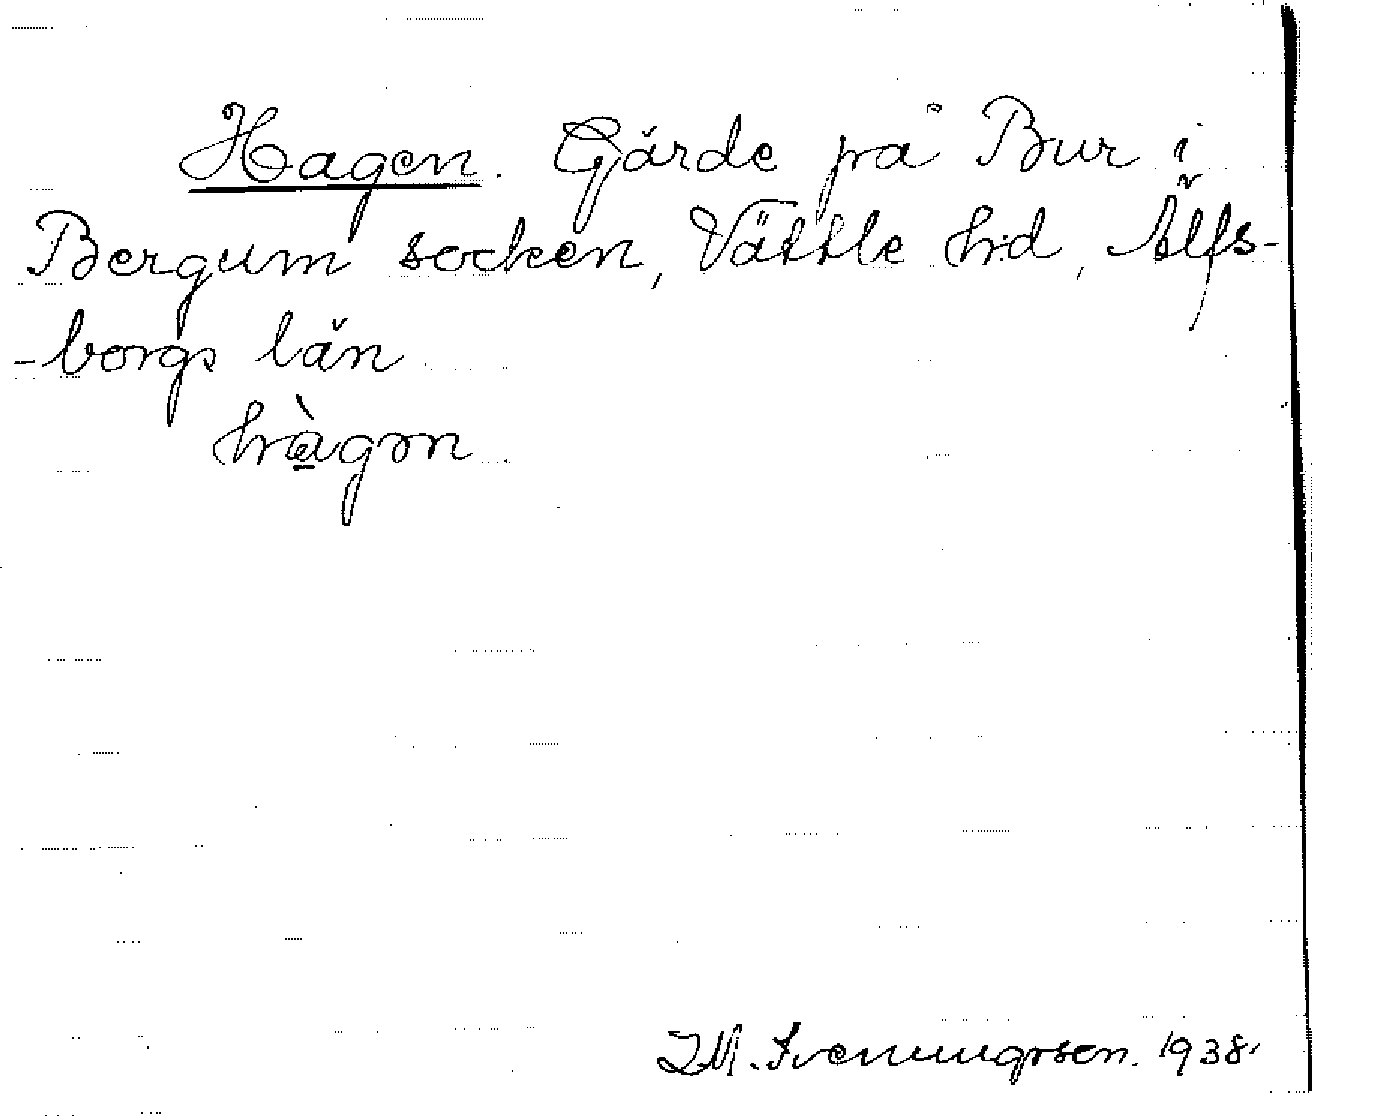 Hagen. Gärde på Bur i
Bergum socken, Vättle hd, Älfs-
-borgs län
hàgon
I.M. Svenungsson. 1938